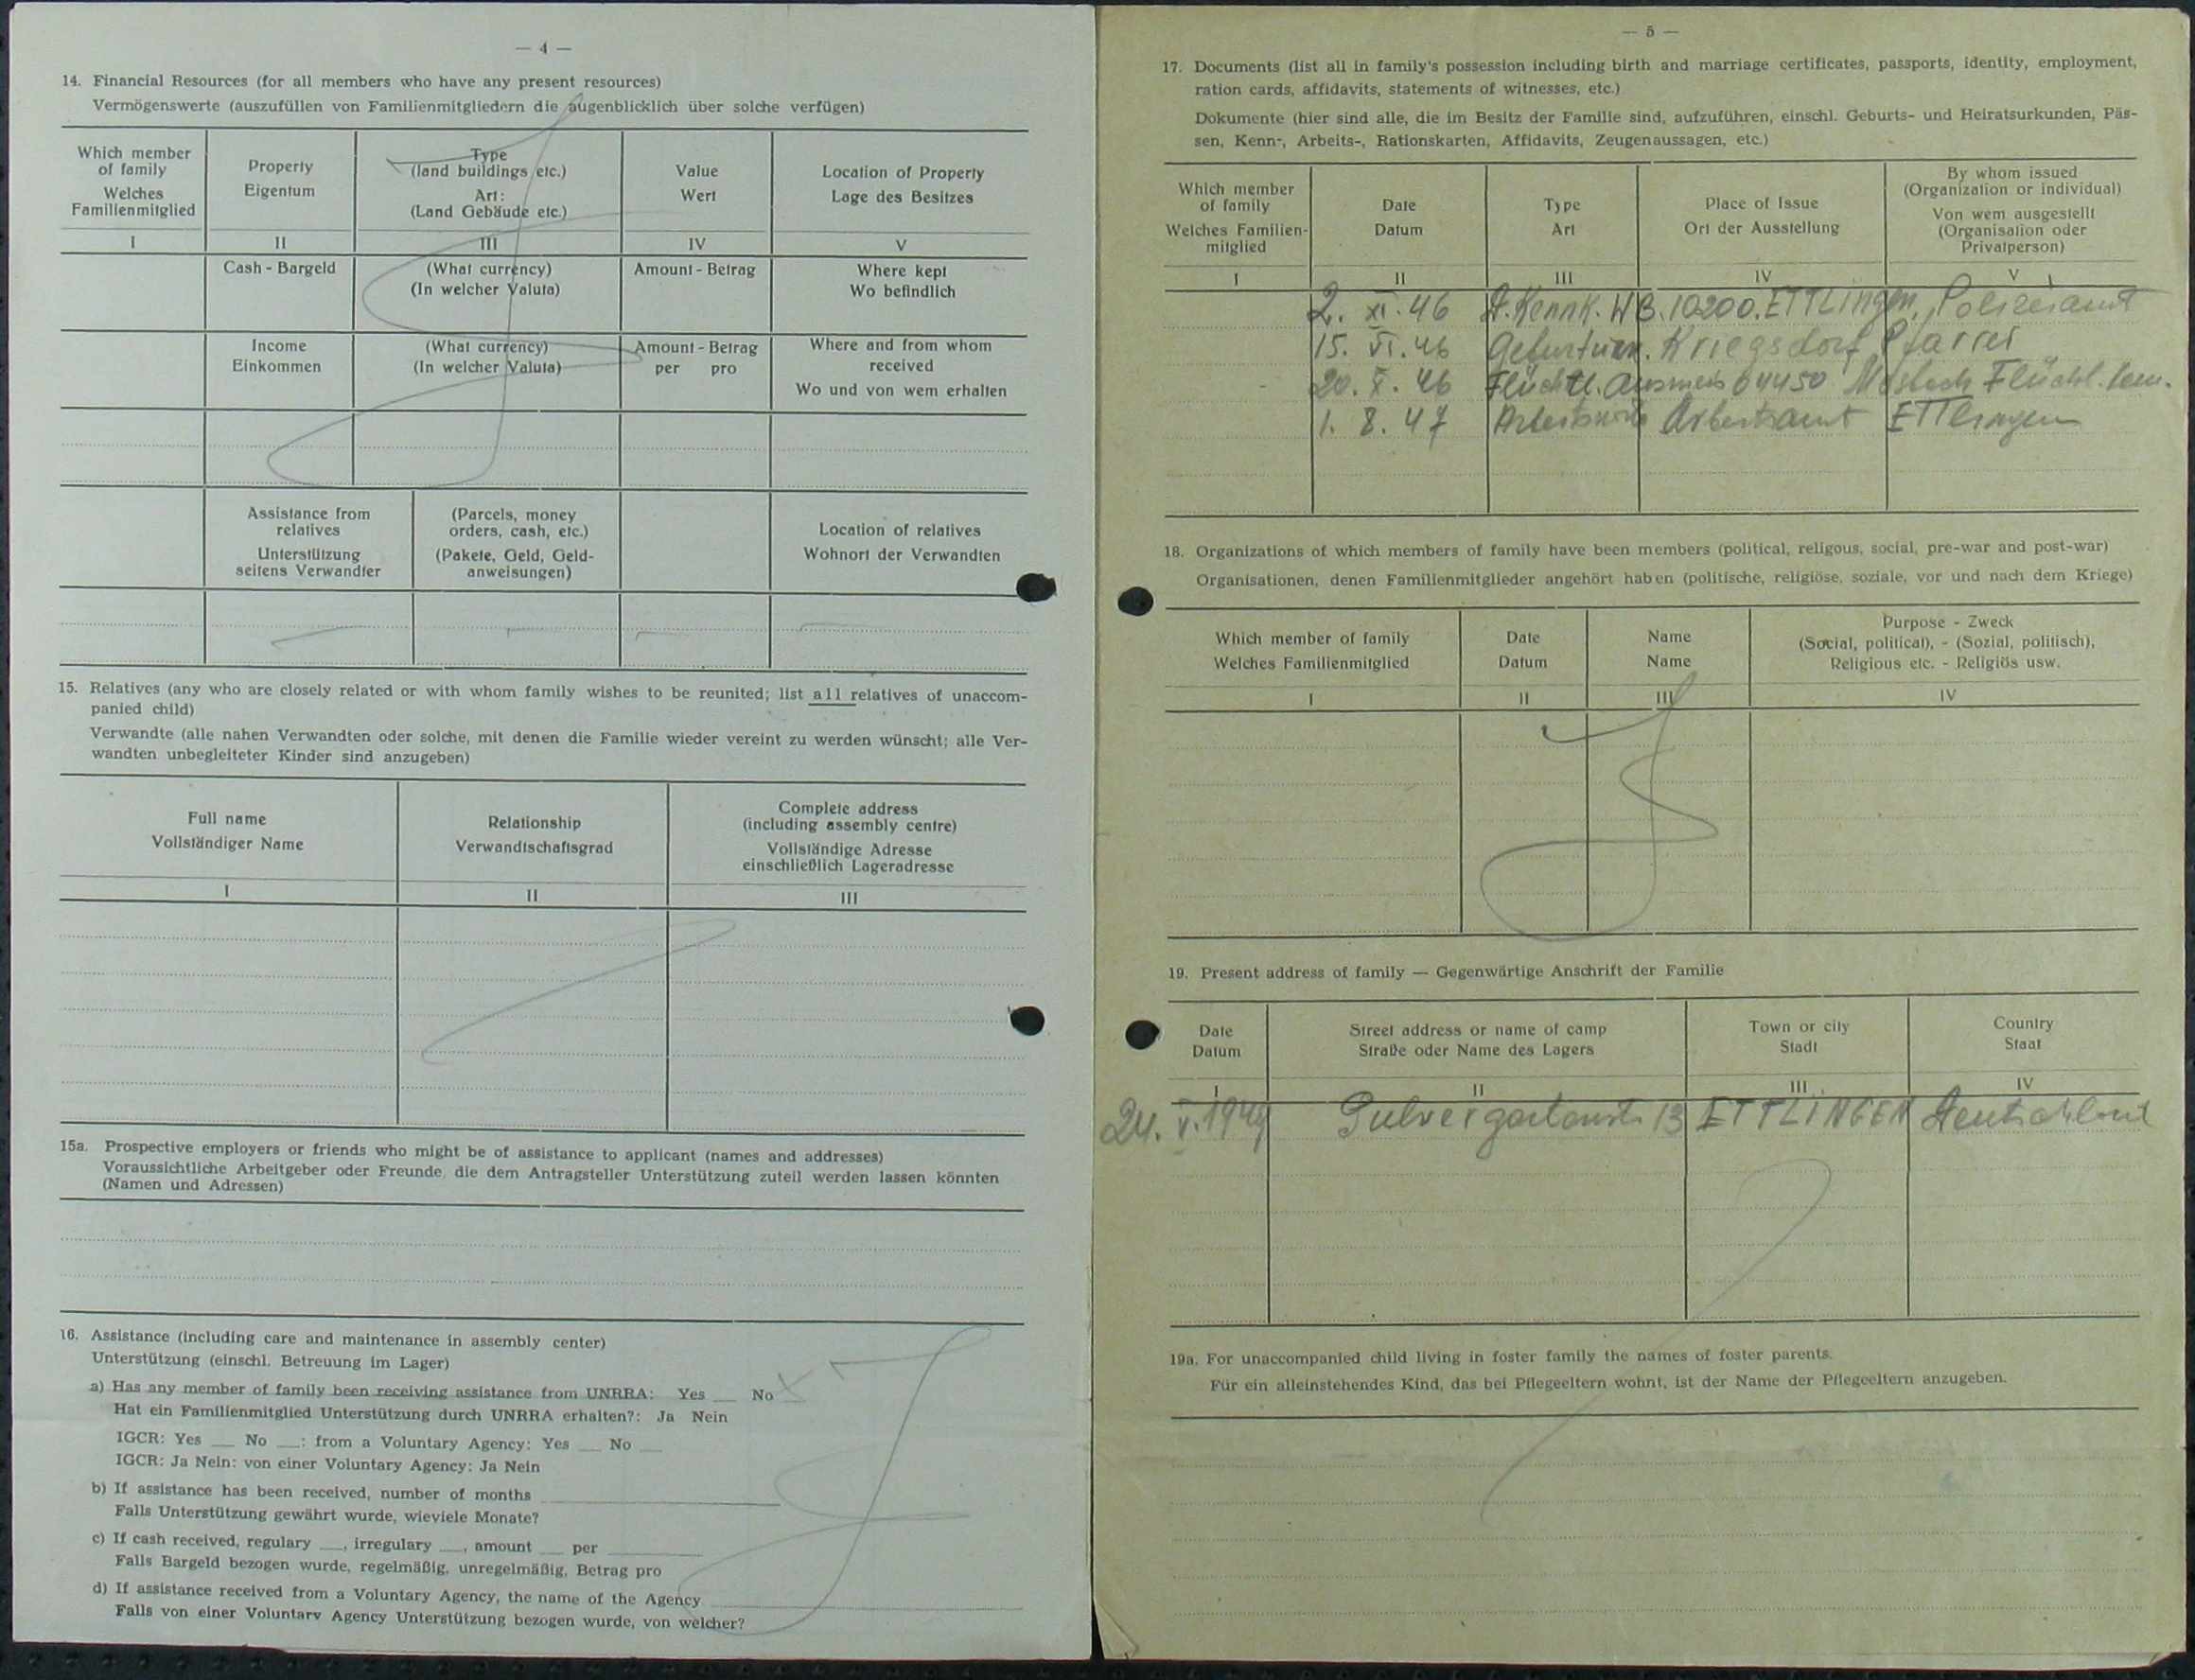 — 4 —
14. Financial Resources (for all members who have any present resources)
Vermögenswerte (auszufüllen von Familienmitgliedern die augenblicklich über solche verfügen)
Which member of family Welches Familienmitglied
Property Eigentum
Type (land buildings etc.) Art: (Land Gebäude etc.)
Value Wert
Location of Property Lage des Besitzes
I II III IV V
Cash - Bargeld
(What currency) (In welcher Valuta)
Amount - Betrag
Where kept Wo befindlich
Income Einkommen
(What currency) (In welcher Valuta)
Amount - Betrag per pro
Where and from whom received Wo und von wem erhalten
Assistance from relatives Unterstützung seitens Verwandter
(Parcels, money orders, cash, etc.) (Pakete, Geld, Geld-anweisungen)
Location of relatives Wohnort der Verwandten
15. Relatives (any who are closely related or with whom family wishes to be reunited; list all relatives of unaccom-
panied child)
Verwandte (alle nahen Verwandten oder solche, mit denen die Familie wieder vereint zu werden wünscht; alle Ver-
wandten unbegleiteter Kinder sind anzugeben)
Full name Vollständiger Name
Relationship Verwandtschaftsgrad
Complete address (including assembly centre) Vollständige Adresse einschließlich Lageradresse
I II III
15a. Prospective employers or friends who might be of assistance to applicant (names and addresses)
Voraussichtliche Arbeitgeber oder Freunde, die dem Antragsteller Unterstützung zuteil werden lassen könnten
(Namen und Adressen)
16. Assistance (including care and maintenance in assembly center)
Unterstützung (einschl. Betreuung im Lager)
a) Has any member of family been receiving assistance from UNRRA: Yes __ No X
Hat ein Familienmitglied Unterstützung durch UNRRA erhalten?: Ja Nein
IGCR: Yes __ No __: from a Voluntary Agency: Yes __ No __
IGCR: Ja Nein: von einer Voluntary Agency: Ja Nein
b) If assistance has been received, number of months
Falls Unterstützung gewährt wurde, wieviele Monate?
c) If cash received, regulary __, irregulary __, amount __ per
Falls Bargeld bezogen wurde, regelmäßig, unregelmäßig, Betrag pro
d) If assistance received from a Voluntary Agency, the name of the Agency
Falls von einer Voluntary Agency Unterstützung bezogen wurde, von welcher?
— 5 —
17. Documents (list all in family's possession including birth and marriage certificates, passports, identity, employment,
ration cards, affidavits, statements of witnesses, etc.)
Dokumente (hier sind alle, die im Besitz der Familie sind, aufzuführen, einschl. Geburts- und Heiratsurkunden, Päs-
sen, Kenn-, Arbeits-, Rationskarten, Affidavits, Zeugenaussagen, etc.)
Which member of family Welches Familien-mitglied
Date Datum
Type Art
Place of Issue Ort der Ausstellung
By whom issued (Organization or individual) Von wem ausgestellt (Organisation oder Privatperson)
I II III IV V
2. XI. 46 D. Kennk. WB. 10200. ETTLingen, Polizeiamt
15. VI. 46 Kriegsdorf Pfarrei
20. X. 46 Flüchtl. Ausweis 04450 Mosbach Flüchtl.
1. 8. 47 Arbeitsamt ETTlingen
18. Organizations of which members of family have been members (political, religous, social, pre-war and post-war)
Organisationen, denen Familienmitglieder angehört haben (politische, religiöse, soziale, vor und nach dem Kriege)
Which member of family Welches Familienmitglied
Date Datum
Name Name
Purpose - Zweck (Social, political), - (Sozial, politisch), Religious etc. - Religiös usw.
I II III IV
19. Present address of family — Gegenwärtige Anschrift der Familie
Date Datum
Street address or name of camp Straße oder Name des Lagers
Town or city Stadt
Country Staat
I II III IV
24. V. 1949 Pulvergartenstr. 13 ETTLINGEN Deutschland
19a. For unaccompanied child living in foster family the names of foster parents.
Für ein alleinstehendes Kind, das bei Pflegeeltern wohnt, ist der Name der Pflegeeltern anzugeben.